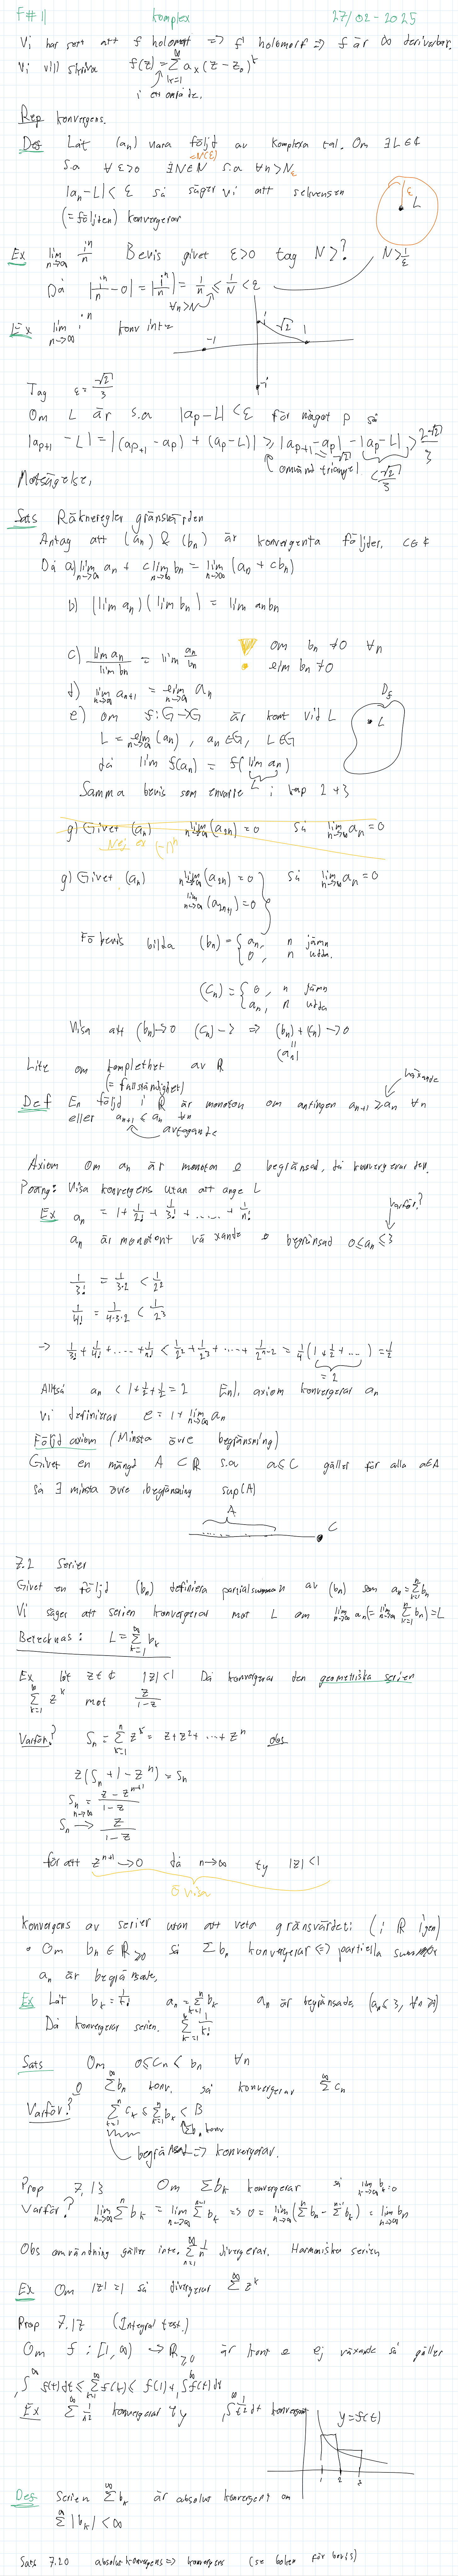 F#11 Komplex 27/02-2025
Vi har sett att f holomorf => f' holomorf => f är ∞ deriverbar.
Vi vill skriva f(z) = ∑_{k=1}^∞ a_k (z-z_0)^k
i ett område.
Rep konvergens.
Def Låt (a_n) vara följd av komplexa tal. Om ∃L∈ℂ
s.a ∀ε>0 ∃N∈ℕ s.a ∀n>N_ε
=N(ε)
|a_n-L| < ε så säger vi att sekvensen
(=följden) konvergerar
ε L
Ex lim_{n→∞} i^n/n Bevis givet ε>0 tag N>? N>1/ε
Då |i^n/n - 0| = |i^n/n| = 1/n ≤ 1/N < ε
∀n>N
Ex lim_{n→∞} i^n konv inte
-1 i √2 1 -i
Tag ε = √2/3
Om L är s.a |a_p-L| < ε för något p så
|a_{p+1} - L| = |(a_{p+1} - a_p) + (a_p-L)| ≥ |a_{p+1}-a_p| - |a_p-L| > 2√2/3
omvänd triangel =√2 <√2/3
Motsägelse.
Sats Räkneregler gränsvärden
Antag att (a_n) & (b_n) är konvergenta följder. c∈ℂ
Då a) lim_{n→∞} a_n + c lim_{n→∞} b_n = lim_{n→∞} (a_n + cb_n)
b) (lim a_n)(lim b_n) = lim a_n b_n
c) lim a_n / lim b_n = lim a_n/b_n om b_n ≠ 0 ∀n
lim b_n ≠ 0
d) lim_{n→∞} a_{n+1} = lim_{n→∞} a_n
e) om f: G→G är kont vid L
L = lim_{n→∞} (a_n), a_n∈G, L∈G
då lim f(a_n) = f(lim a_n)
L
D_f
L
Samma bevis som envarre i kap 2+3
g) Givet (a_n) lim_{n→∞} (a_{2n}) = 0 så lim_{n→∞} a_n = 0
Nej ex (-1)^n
g) Givet (a_n) lim_{n→∞} (a_{2n}) = 0 så lim_{n→∞} a_n = 0
lim_{n→∞} (a_{2n+1}) = 0
För bevis bilda (b_n) = { a_n, n jämn
0, n udda.
(c_n) = { 0, n jämn
a_n, n udda
Visa att (b_n)→0 (c_n)→ ⇒ (b_n)+(c_n)→0
(a_n)
Lite om komplethet av ℝ
(= fullständighet)
växande
Def En följd i ℝ är monoton om antingen a_{n+1} ≥ a_n ∀n
eller a_{n+1} ≤ a_n ∀n
avtagande
Axiom Om a_n är monoton & begränsad, då konvergerar den.
Poäng: Visa konvergens utan att ange L
Ex a_n = 1 + 1/2! + 1/3! + ...... + 1/n!
varför?
a_n är monotont växande & begränsad 0 ≤ a_n ≤ 3
1/3! = 1/3·2 < 1/2^2
1/4! = 1/4·3·2 < 1/2^3
→ 1/3! + 1/4! + ..... + 1/n! < 1/2^2 + 1/2^3 + ... + 1/2^{n-2} = 1/4 (1 + 1/2 + ....) = 1/2
= 2
Alltså a_n < 1+½+½ = 2 Enl. axiom konvergerar a_n
Vi definierar e = 1 + lim_{n→∞} a_n
Följdaxiom (Minsta övre begränsning)
Givet en mängd A ⊂ ℝ s.a a ≤ C gäller för alla a∈A
så ∃ minsta övre begränsning sup(A)
A C
7.2 Serier
Givet en följd (b_n) definiera partialsumman av (b_n) som a_n = ∑_{k=1}^n b_k
Vi säger att serien konvergerar mot L om lim_{n→∞} a_n (= lim_{n→∞} ∑_{k=1}^n b_k) = L
Betecknas: L = ∑_{k=1}^∞ b_k
Ex låt z∈ℂ |z|<1 Då konvergerar den geometriska serien
∑_{k=1}^∞ z^k mot z/(1-z)
Varför? S_n = ∑_{k=1}^n z^k = z+z^2+ ... +z^n obs
z(S_n + 1 - z^n) = S_n
S_n = (z-z^{n+1})/(1-z)
S_n →_{n→∞} z/(1-z)
för att z^{n+1} → 0 då n→∞ ty |z|<1
Övn
Konvergens av serier utan att veta gränsvärdet: (i ℝ igen)
• Om b_n ∈ ℝ_{≥0} så ∑b_n konvergerar <=> partiella summor
a_n är begränsade.
Ex Låt b_k = 1/k! a_n = ∑_{k=1}^n b_k a_n är begränsade (a_n ≤ 3, ∀n≥1)
Då konvergerar serien. ∑_{k=1}^∞ 1/k!
Sats Om 0≤c_n<b_n ∀n
& ∑^∞ b_n konv. så konvergerar ∑^∞ c_n
Varför? ∑_{k=1}^n c_k ≤ ∑_{k=1}^n b_k < B
∑b_n konv
begränsat => konvergerar.
Prop 7.13 Om ∑b_k konvergerar så lim_{k→∞} b_k = 0
Varför? lim_{n→∞} ∑^n b_k = lim_{n→∞} ∑^{n-1} b_k => 0 = lim_{n→∞} (∑^n b_n - ∑^{n-1} b_k) = lim_{n→∞} b_n
Obs omvändning gäller inte. ∑_{n=1}^∞ 1/n divergerar. Harmoniska serien
Ex Om |z|=1 så divergerar ∑^∞ z^k
Prop 7.17 (Integral test.)
Om f: [1,∞) → ℝ_{≥0} är kont & ej växande så gäller
∫_1^∞ f(t)dt ≤ ∑_{k=1}^∞ f(k) ≤ f(1) + ∫_1^∞ f(t)dt
Ex ∑^∞ 1/k^2 konvergerar ty ∫_1^∞ 1/t^2 dt konvergerar
y=f(t)
1 2 3
Def Serien ∑^∞ b_k är absolut konvergent om
∑^∞ |b_k| < ∞
Sats 7.20 absolutkonvergens => konvergens (se boken för bevis)